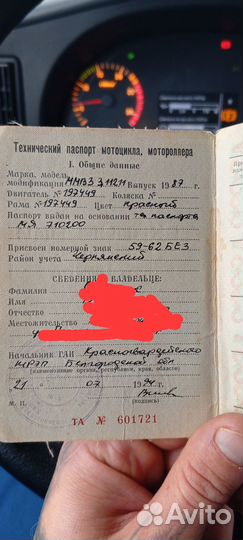 Технический паспорт мотоцикла, мотороллера
I. Общие данные
Марка, модель,
модификация ММВЗ 3 11211 Выпуск 1987 г.
Двигатель № 197449 Коляска №
Рама № 197449 Цвет Красный
Паспорт выдан на основании тех паспорта
МЯ 710200
Присвоен номерной знак 59-62 БЕЗ
Район учета Чернянский
СВЕДЕНИЯ О ВЛАДЕЛЬЦЕ:
Фамилия
Имя
Отчество
Местожительство
Начальник ГАИ Красногвардейского
МРЭП Белгородской обл
(наименование органа, республики, края, области)
"21" 07 1994 г.
М. П. (подпись)
ТА № 601721
Avito